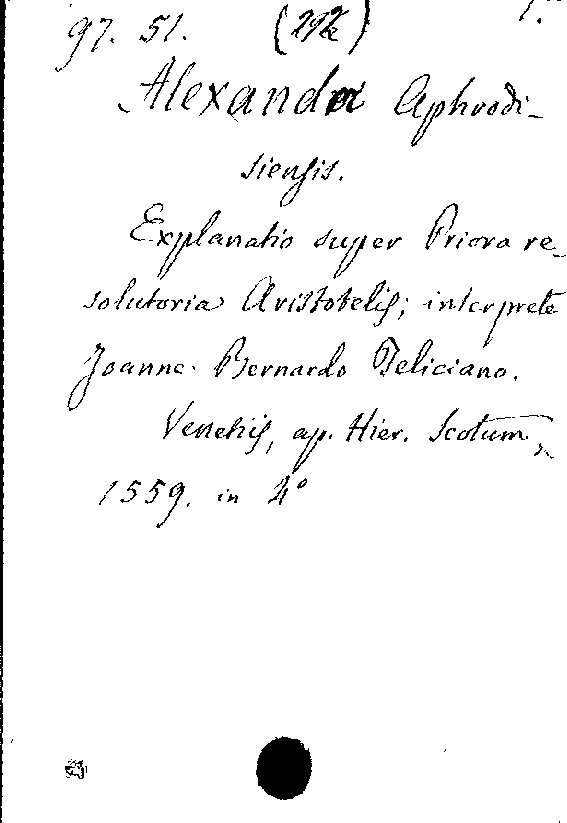 97. 51.
Alexander Aphrodi-
siensis.
Explanatio super Priora re-
solutoria Aristotelis; interprete
Joanne Bernardo Feliciano.
Venetiis, ap. Hier. Scotum,
1559. in 4°